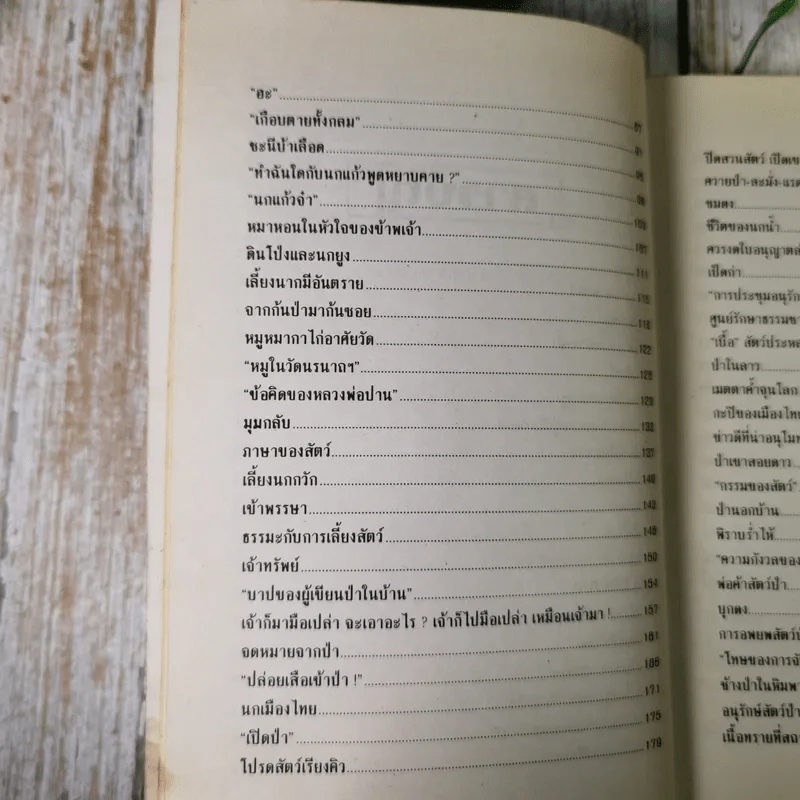 "ฮะ"
"เกือบตายทั้งกลม" 87
ชะนีบ้าเลือด 91
"ทำฉันใดกับนกแก้วพูดหยาบคาย ?" 95
"นกแก้วจ๋า" 99
หมาหอนในหัวใจของข้าพเจ้า 103
ดินโป่งและนกยูง 107
เลี้ยงนากมีอันตราย 111
จากก้นป่ามาก้นซอย 115
หมูหมากาไก่อาศัยวัด 118
"หมูในวัดนรนาถฯ" 122
"ข้อคิดของหลวงพ่อปาน" 125
มุมกลับ 129
ภาษาของสัตว์ 133
เลี้ยงนกกวัก 137
เข้าพรรษา 140
ธรรมะกับการเลี้ยงสัตว์ 143
เจ้าทรัพย์ 146
"บาปของผู้เขียนป่าในบ้าน" 150
เจ้าก็มามือเปล่า จะเอาอะไร ? เจ้าก็ไปมือเปล่า เหมือนเจ้ามา ! 154
จดหมายจากป่า 157
"ปล่อยเสือเข้าป่า !" 161
นกเมืองไทย 166
"เปิดป่า" 171
โปรดสัตว์เรียงคิว 175
179
ปิดสวนสัตว์ เปิดเข
ควายป่า-ละมั่ง-แรด
ชมดง
ชีวิตของนกน้ำ
ควรงดใบอนุญาตล่
เป็ดก่า
"การประชุมอนุรัก
ศูนย์รักษาธรรมชา
"เบื้อ" สัตว์ประหล
ป่าในลาว
เมตตาค้ำจุนโลก
กะปิของเมืองไทย
ข่าวดีที่น่าอนุโมท
ป่าเขาสอยดาว
"กรรมของสัตว์"
ป่านอกบ้าน
พิราบร่ำไห้
"ความกังวลของ
พ่อค้าสัตว์ป่า
บุกดง
การอพยพสัตว์ป่
"โทษของการจั
ช้างป่าในหิมพา
อนุรักษ์สัตว์ป่า
เนื้อทรายที่สถา